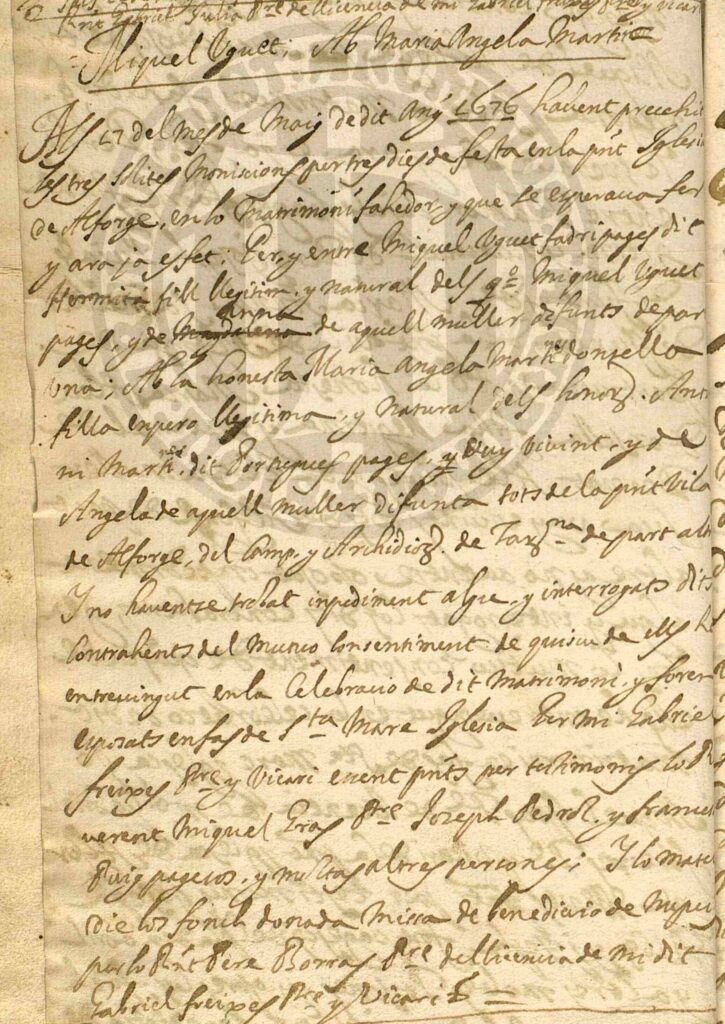 Pnt Gabriel Julia Pre de llicencia de mi Gabriel freixes Pre y vicari
Miquel Uguet; Ab Maria Angela Martine
Als 17 del mes de Maig de dit Any 1676 havent precehit
les tres solites Monisions per tres dies de festa en la pnt Iglesia
de Alforge, en lo Matrimoni fahedor, y que se esperava fer
y ara ja es fet; Per, y entre Miquel Uguet fadri pages dit
Hermita fill llegitim, y natural dels qo Miquel Uguet
pages, y de Magdalena anna de aquell muller difunts de part
una; Ab la honesta Maria Angela Martine donzella
filla enpero llegitima, y natural dels honor. Anto
ni Martine, dit Portugues pages, y vuy vivint, y de
Angela de aquell muller difunta tots de la pnt Vila
de Alforge, del Camp, y Archidio. de Tarna. de part altra
Y no haventse trobat inpediment algu, y interrogats dits
Contrahents del Mutuo Consentiment de quiscu de ells ha
entrevingut en la Celebracio de dit Matrimoni, y foren
esposats en fas de Sta Mare Iglesia Per mi Gabriel
freixes Pre y Vicari essent pnts per testimonis lo Re
verent Miquel Gras Pre Joseph Pedrol, y Francesc
Puig pagesos, y moltas altres persones; Y lo mateix
die los fonch donada Missa de benedictio de Nupcis
per lo Rnt Pere Borras Pre de llicencia de mi dit
Gabriel freixes Pre y Vicari